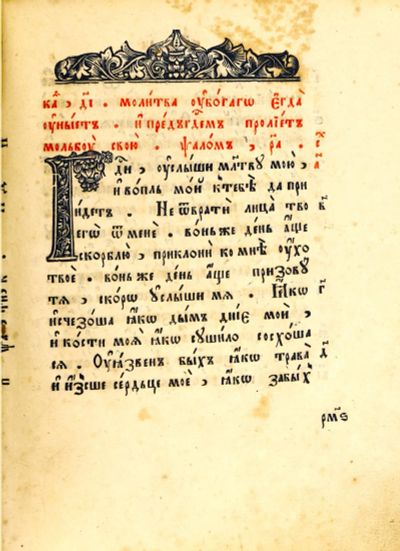 каѳ҃ , г҃і . моли́тва ᲂу҆бо́гагѡ є҆гда̀
ᲂу҆ны́етъ . и҆ пре́дъ гдⷭ҇емъ пролїе́тъ
мольбо́у свою̀ . ѱало́мъ , р҃а .
Гдⷭ҇и , ᲂу҆слы́ши мл҃тву мою̀ ,
и҆ во́пль мо́й к̾тебѣ̀ да прї
и́детъ . Не ѿвратѝ лица̀ тво
егѡ̀ ѿ менѐ . во́ньже де́нь а҆́ще
скорблю̀ , приклонѝ ко мнѣ̀ ᲂу҆́хо
твоѐ . во́ньже де́нь а҆́ще призову́
тѧ , ско́рѡ ᲂу҆слы́ши мѧ . Ꙗ҆́кѡ
и҆счезо́ша ꙗ҆́кѡ ды́мъ дні́е мои̑ ,
и҆ ко́сти моѧ̀ ꙗ҆́кѡ сꙋши́ло сосхо́ша
сѧ . Оу҆ѧ́звенъ бы́хъ ꙗ҆́кѡ трава̀
и҆ и҆́зсше се́рдьце моѐ , ꙗ҆́кѡ забы́хъ
рм҃ѕ